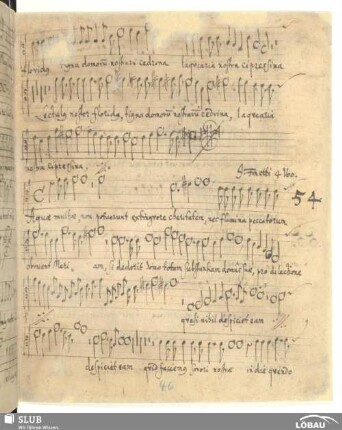 floridꝫ tigna domorū nostrarū cedrina laquearia nostra cipressina
Lectulꝫ noster floridꝫ, tigna domorū nostrarū cedrina, laquearia
nostra cipressina.
4 Voc.
54
Aquæ multæ non potuerunt extinguere charitatem, nec flumina
am, si dederit homo totam substantiam domus suæ, pro dilectione
quasi nihil despiciet eam
despiciet eam quid faciemꝫ sorori nostræ in die quando
46
SLUB
Wir führen Wissen.
LÖBAU